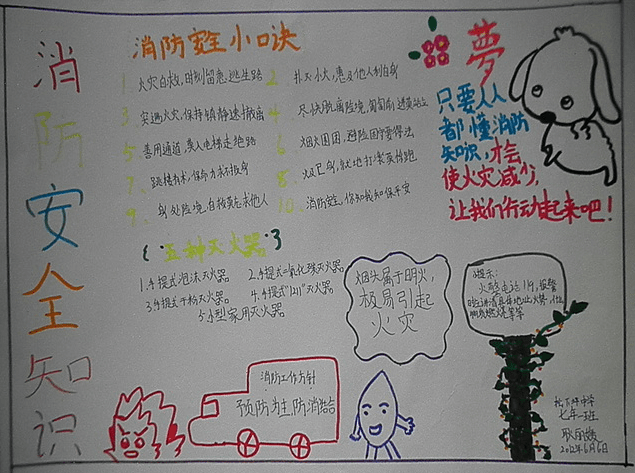 消防安全知识
消防安全小口诀
1. 火灾自救，时刻留意，逃生路
2. 扑灭小火，惠及他人利自身
3. 突遇火灾，保持镇静速撤离
4. 尽快脱离险境，
5. 善用通道，莫入电梯走绝路
6. 烟火围困，避险固守要得法
7. 跳楼有术，保命力求
8. 火已及身，就地打滚莫惊跑
9. 身处险境，自救莫忘救他人
10. 消防安全，你知我知保平安
五种灭火器
1.手提式泡沫灭火器
2.手提式二氧化碳灭火器
3.手提式干粉灭火器。
4.手提式"1211"灭火器
5.小型家用灭火器
夢
只要人人
都懂消防
知识，才会
使火灾减少，
让我们行动起来吧！
烟头属于明火，
极易引起
火灾
提示：
火警电话119，报警
消防工作方针
预防为主防消结合
七年一班
2012年6月6日